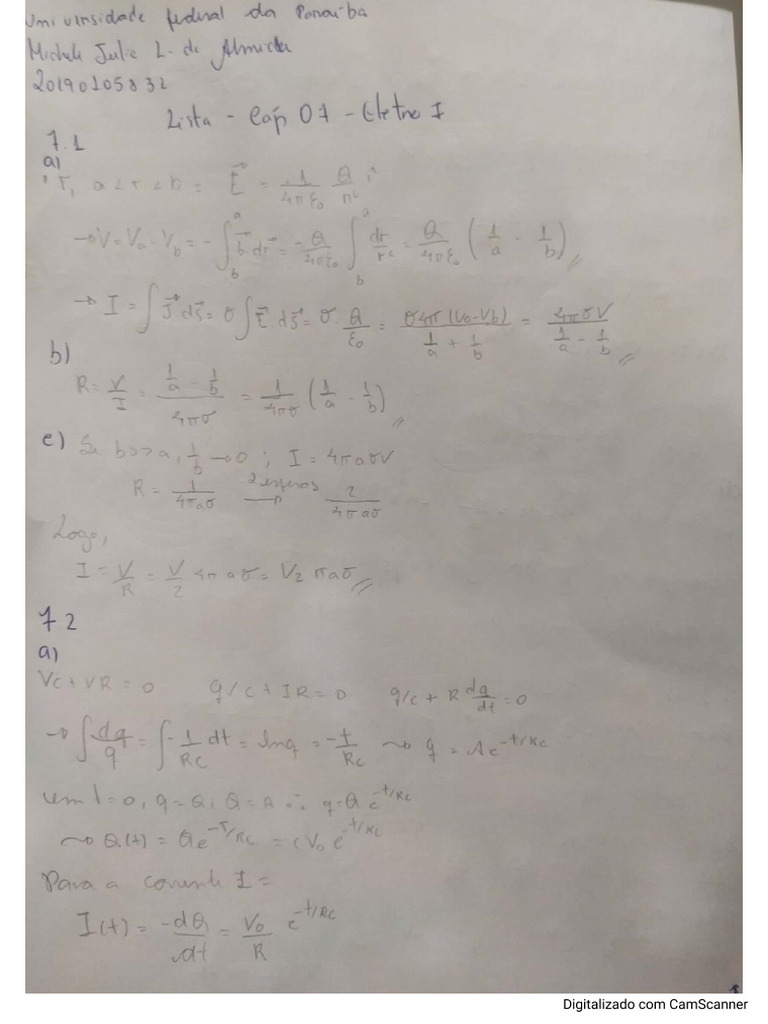 Universidade federal da Paraíba
Michele Julie L. de Almeida
20190105832
Lista - Cap 07 - Eletro I
7.1
a)
r, a < r < b = E⃗ = 1/4πε₀ Q/r² r̂
→ V = Va - Vb = -∫_b^a E⃗ · dr⃗ = -Q/4πε₀ ∫_b^a dr/r² = Q/4πε₀ (1/a - 1/b)
→ I = ∫ J⃗ ds⃗ = σ ∫ E⃗ ds⃗ = σ · Q/ε₀ = σ4π(Va-Vb) / (1/a + 1/b) = 4πσV / (1/a - 1/b)
b)
R = V/I = (1/a - 1/b) / 4πσ = 1/4πσ (1/a - 1/b)
c) Se b>>a, 1/b → 0 ; I = 4πaσV
R = 1/4πaσ 2 esferas → 2/4πaσ
Logo,
I = V/R = V/2 4πaσ = V2πaσ
7.2
a)
Vc + VR = 0 q/c + IR = 0 q/c + R dq/dt = 0
→ ∫ dq/q = ∫ -1/RC dt = lnq = -t/RC ⇝ q = Ae^-t/RC
em t=0, q=Q, Q=A ∴ q=Q e^-t/RC
⇝ Q(t) = Qe^-t/RC = CV₀ e^-t/RC
Para a corrente I =
I(t) = -dQ/dt = V₀/R e^-t/RC
Digitalizado com CamScanner